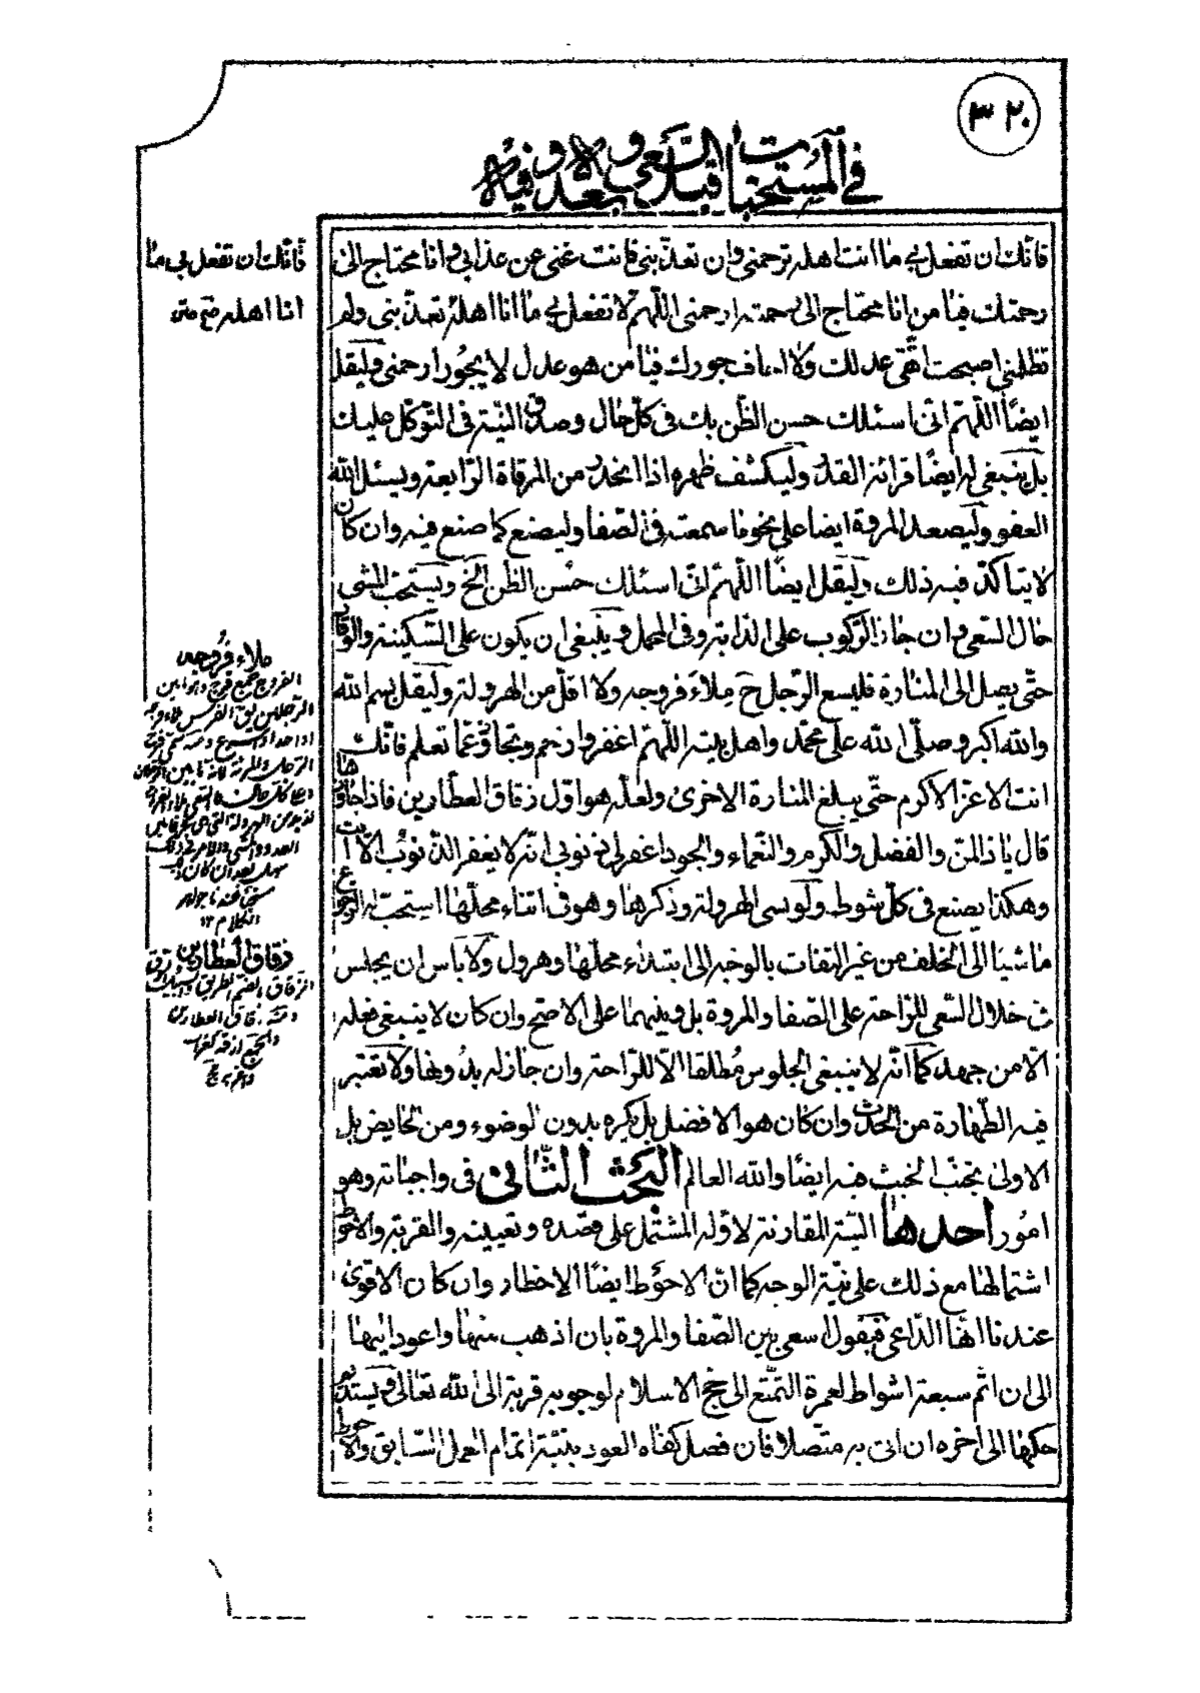 ٣٢٠
في المستحبات قبل السعي و بعده و فيه
فانك ان تفعل بي ما انت اهله ترحمني وان تعذبني فانت غني عن عذابي وانا محتاج الى
رحمتك فيا من انا محتاج الى رحمته ارحمني اللهم لا تفعل بي ما انا اهله تعذبني ولم
تظلمني اصبحت اتقي عدلك ولا اخاف جورك فيا من هو عدل لا يجور ارحمني وليقل
ايضًا اللهم اني اسئلك حسن الظن بك في كل حال وصدق النية في التوكل عليك
بل ينبغي له ايضًا قرائة القدر وليكشف ظهره اذا انحدر من المرقاة الرابعة ويسئل الله
العفو وليصعد المروة ايضا على نحو ما سمعته في الصفا وليصنع كما صنع فيه وان كان
لا يتاكد فيه ذلك وليقل ايضًا اللهم اني اسئلك حسن الظن الخ ويستحب المشي
حال السعي وان جاز الركوب على الدابة وفي المحمل وينبغي ان يكون على السكينة والوقار
حتى يصل الى المنارة فليسع الرجل ح ملاء فروجه ولا اقل من الهرولة وليقل بسم الله
والله اكبر وصلى الله على محمد واهل بيته اللهم اغفر وارحم وتجاوز عما تعلم فانك
انت الاعز الاكرم حتى يبلغ المنارة الاخرى ولعله هو اول زقاق العطارين فاذا جاوزها
قال يا ذا المن والفضل والكرم والنعماء والجود اغفر لي ذنوبي انه لا يغفر الذنوب الا انت
وهكذا يصنع في كل شوط ولو نسى الهرولة وذكرها وهو في اثناء محلها استحب له الرجوع
ماشيا الى الخلف من غير التفات بالوجه الى ابتداء محلها وهرول ولا باس ان يجلس
في خلال السعي للراحة على الصفا والمروة بل وبينهما على الاصح وان كان لا ينبغي فعله
الا من جهد كما انه لا ينبغي الجلوس مطلقا الا للراحة وان جاز له بدونها ولا تعتبر
فيه الطهارة من الحدث وان كان هو الافضل بل يكره بدون الوضوء ومن الحايض بل
الاولى تجنب الخبث فيه ايضًا والله العالم البحث الثاني في واجباته وهو
امور احدها النية المقارنة لاوله المشتمل على قصده وتعيينه والقربة والاحوط
اشتمالها مع ذلك على نية الوجه كما ان الاحوط ايضًا الاخطار وان كان الاقوى
عندنا انها الداعي فيقول اسعى بين الصفا والمروة بان اذهب منها واعود اليها
الى ان اتم سبعة اشواط لعمرة التمتع الى حج الاسلام لوجوبه قربة الى الله تعالى ويستديم
حكمها الى اخره ان اتى به متصلا فان فصل كفاه العود بنية اتمام العمل السابق والاحوط
فانك ان تفعل بي ما
انا اهله صح متن
ملاء فروجه
الفروج جمع فرج وهو ما بين
الرجلين يق الفرس ملاء فروجه
اذا عدا واسرع
سهل بعد ان كان ذلك
الكلام ١٢
زقاق العطارين
الزقاق بالضم الطريق
ومنه زقاق العطارين
والجمع ازقة